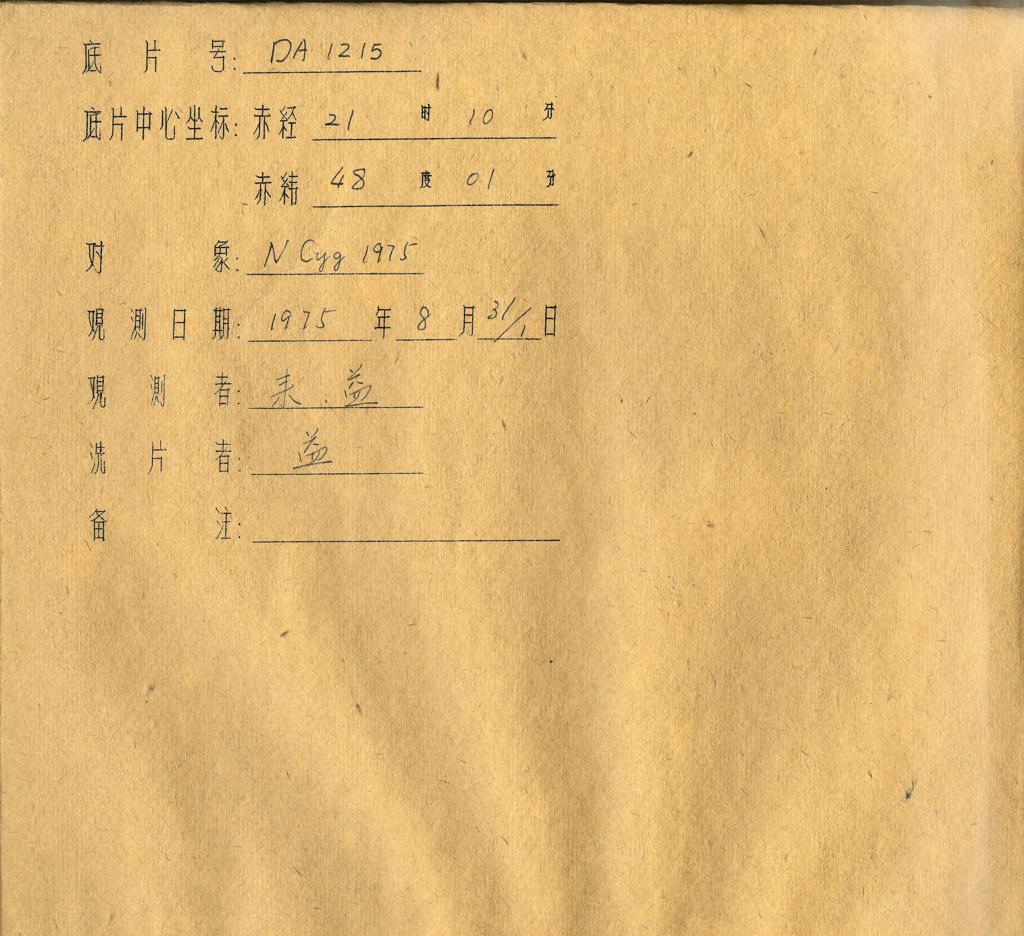 底片号: DA 1215
底片中心坐标: 赤经 21 时 10 分
赤纬 48 度 01 分
对象: N Cyg 1975
观测日期: 1975 年 8 月 31/1 日
观测者: 耒. 益
洗片者: 益
备注: